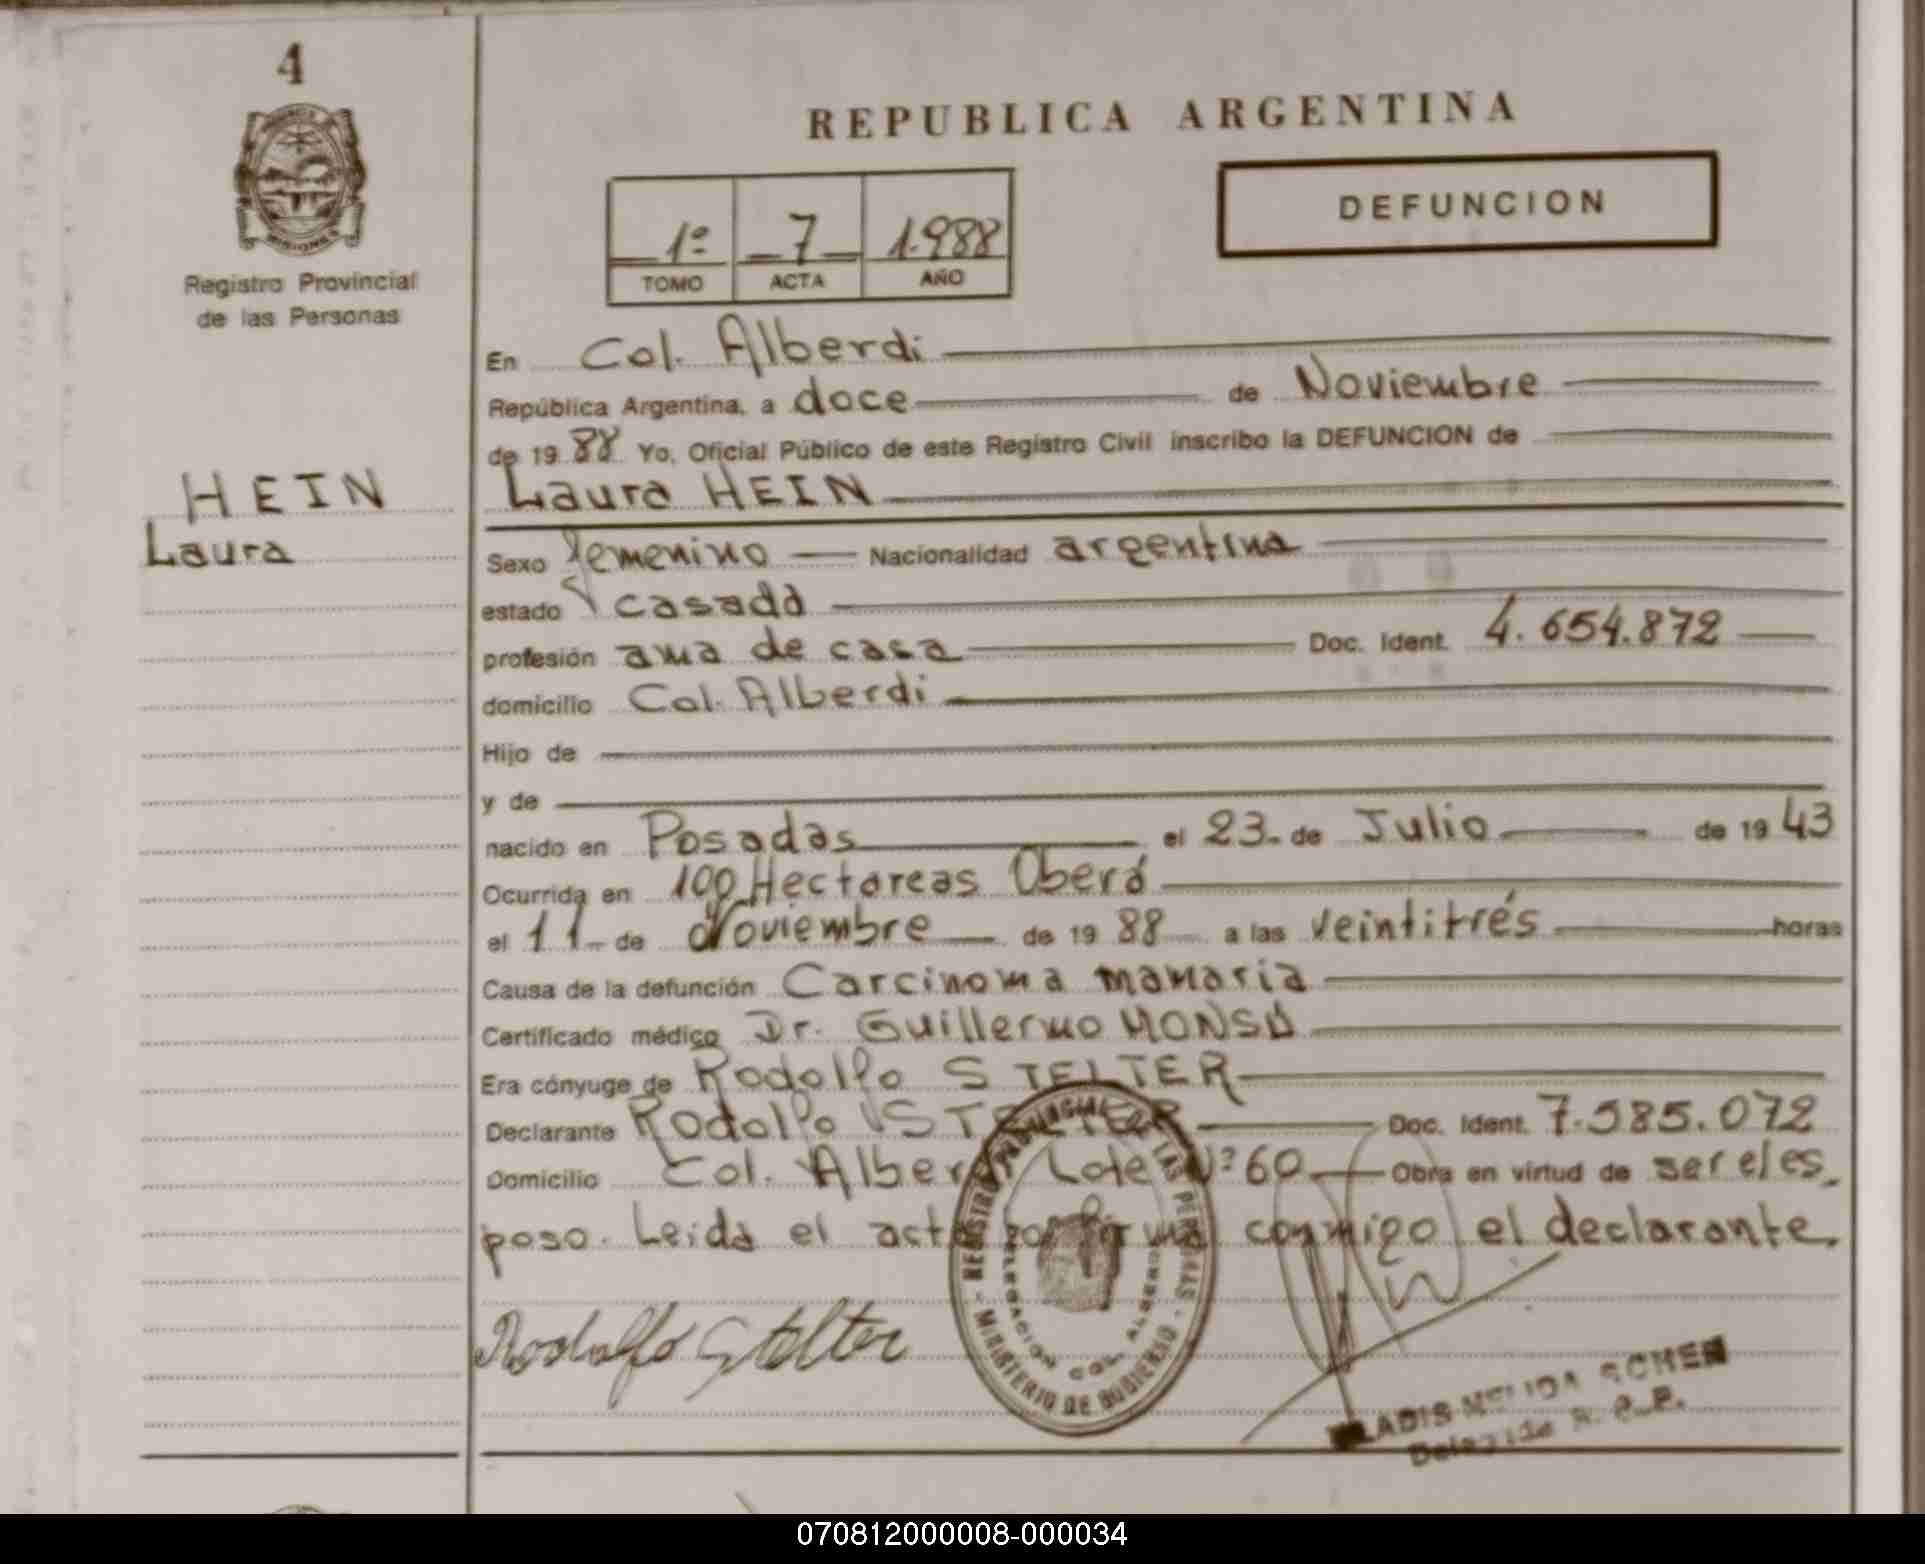 4
MISIONES
Registro Provincial
de las Personas
HEIN
Laura
REPUBLICA ARGENTINA
1º 7 1.988
TOMO ACTA AÑO
DEFUNCION
En Col. Alberdi
República Argentina, a doce de Noviembre
de 19 88 Yo, Oficial Público de este Registro Civil inscribo la DEFUNCION de
Laura HEIN
Sexo femenino Nacionalidad argentina
estado casada
profesión ama de casa Doc. Ident. 4.654.872
domicilio Col. Alberdi
Hijo de
y de
nacido en Posadas el 23 de Julio de 19 43
Ocurrida en 100 Hectareas Oberá
el 11 de Noviembre de 19 88 a las veintitrés horas
Causa de la defunción Carcinoma mamaria
Certificado médico Dr. Guillermo
Era cónyuge de Rodolfo STELTER
Declarante Rodolfo STELTER Doc. Ident. 7.585.072
Domicilio Col. Alberdi Lote Nº 60 Obra en virtud de ser el es
poso. Leida el acta firma conmigo el declarante.
Rodolfo Stelter
REGISTRO PROVINCIAL DE LAS PERSONAS
MINISTERIO DE GOBIERNO
DELEGACION COL. ALBERDI
070812000008-000034